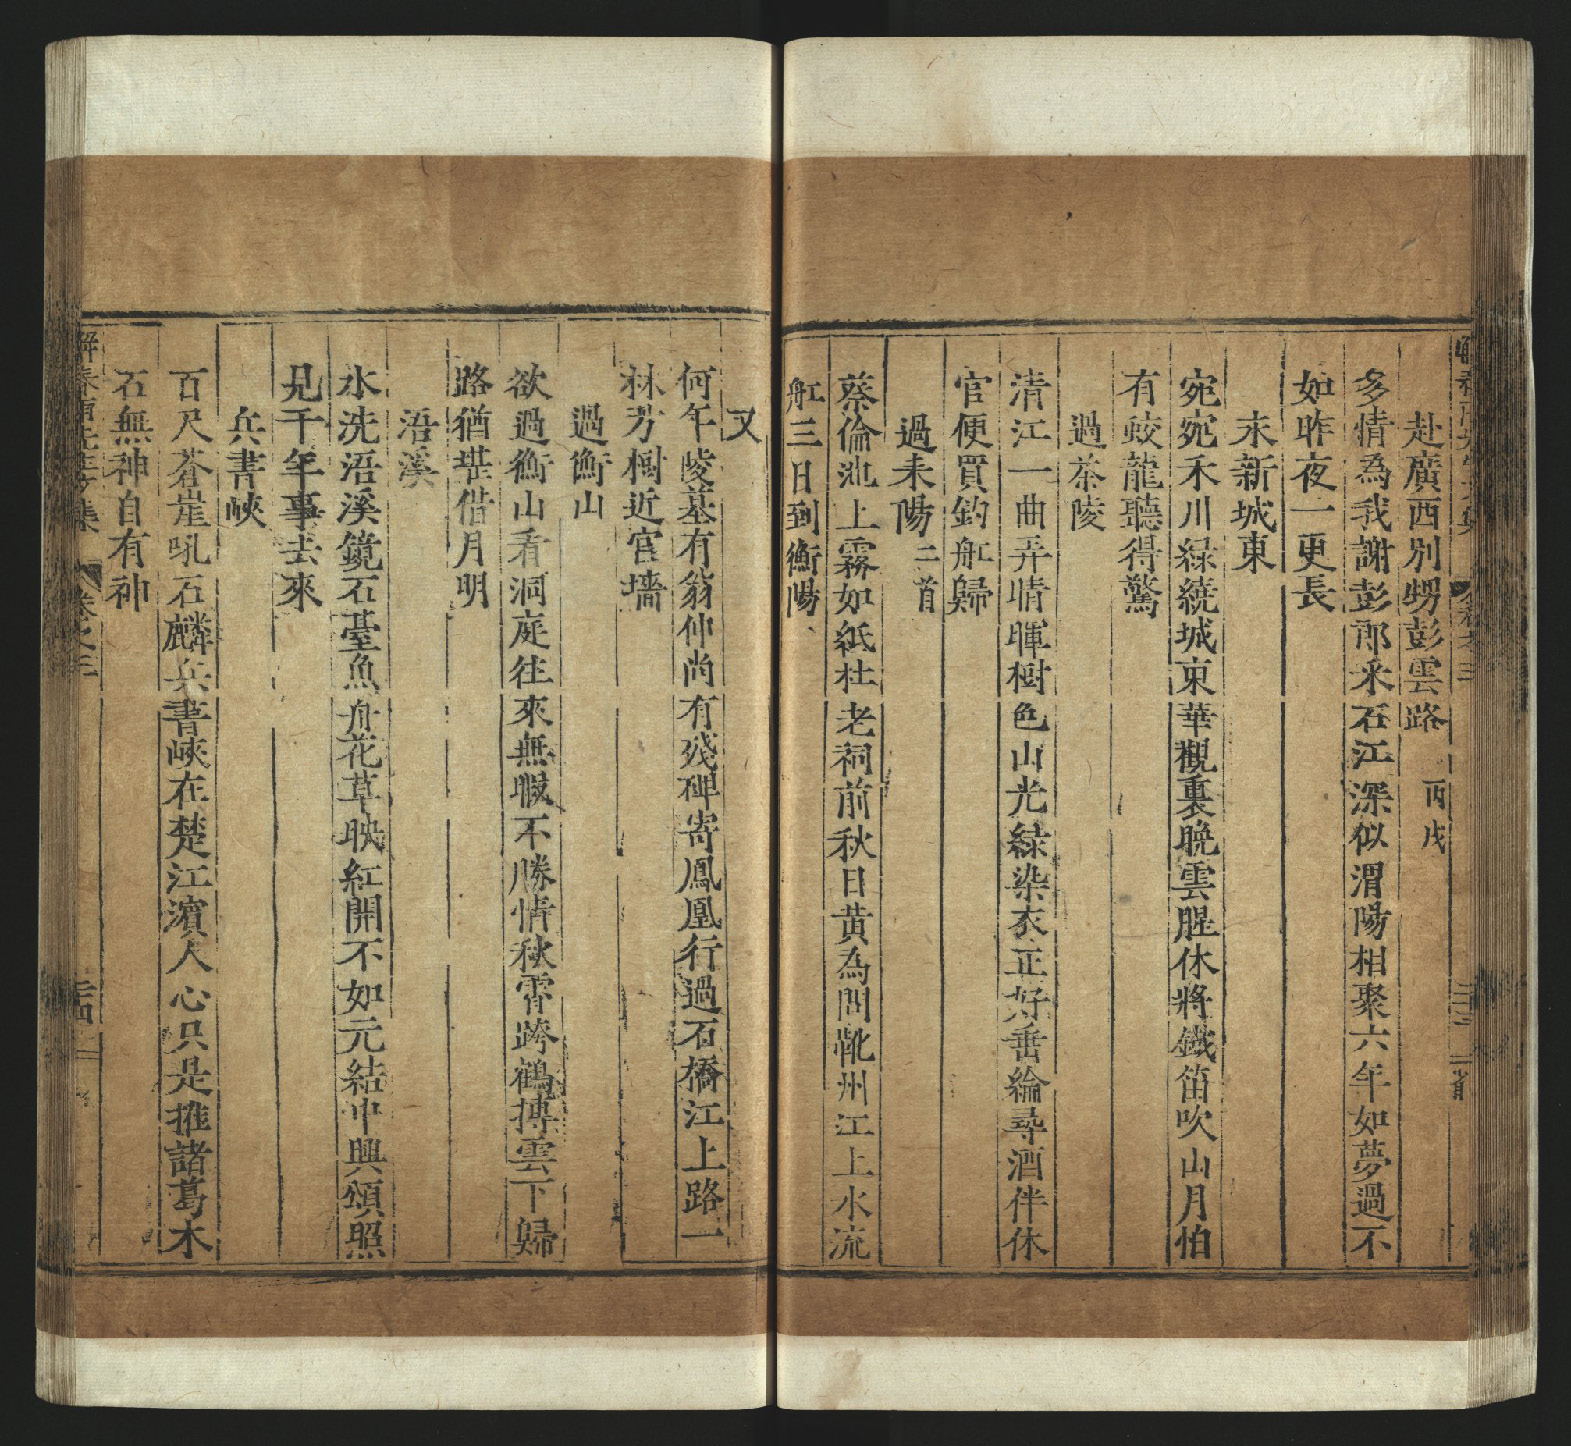 赴廣西別甥彭雲路 丙戌
多情為我謝彭郎采石江深似渭陽相聚六年如夢過不
如昨夜一更長
永新城東
宛宛禾川綠繞城東華觀裏晚雲腥休將鐵笛吹山月怕
有蛟龍聽得驚
過茶陵
清江一曲弄晴暉樹色山光綠染衣正好垂綸尋酒伴休
官便買釣舡歸
過耒陽 二首
蔡倫池上霧如紙杜老祠前秋日黃為問靴州江上水流
舡三日到衡陽
又
何年陵墓有翁仲尚有殘碑寄鳳凰行過石橋江上路一
林芳樹近宮墻
過衡山
欲過衡山看洞庭往來無暇不勝情秋霄跨鶴摶雲下歸
路猶堪借月明
浯溪
水洗浯溪鏡石臺魚舟花草映紅開不如元結中興頌照
見千年事去來
兵書峽
百尺蒼崖吼石麟兵書峽在楚江濱人心只是推諸葛木
石無神自有神
解春雨先生文集 卷之三 三十四